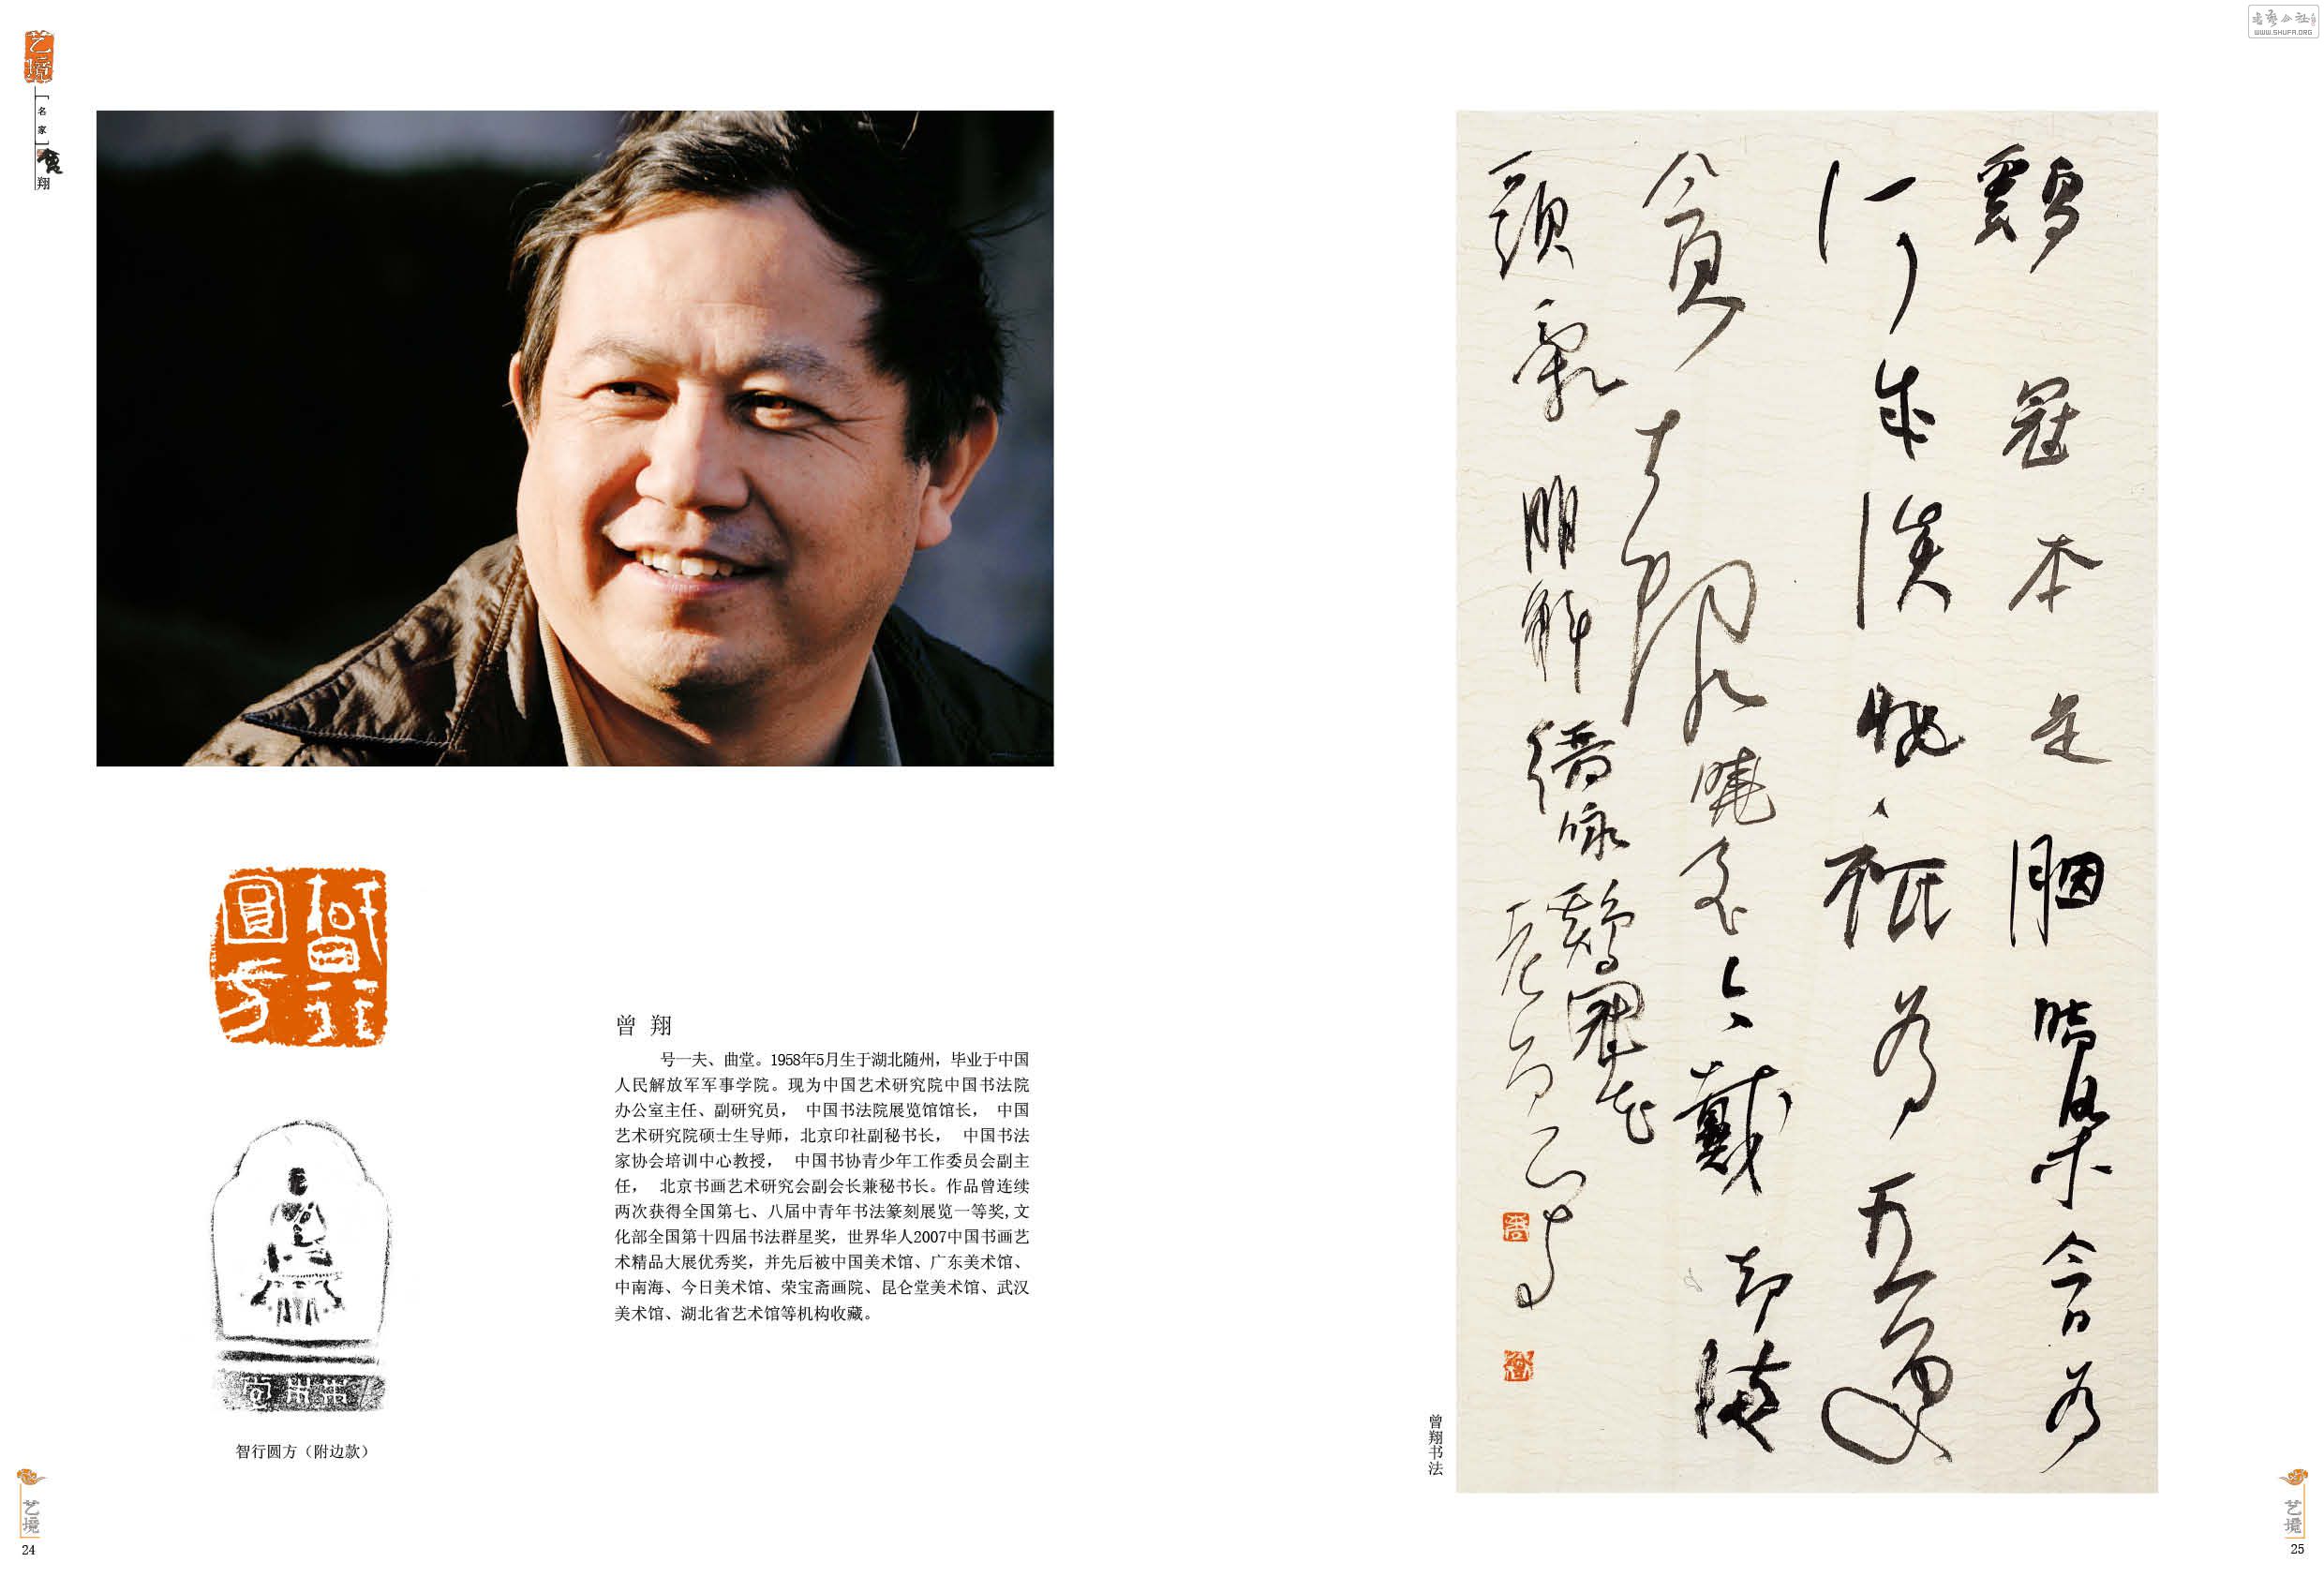 艺境
[名家]
曾翔
书艺公社
WWW.SHUFA.ORG
鷄冠本是胭脂染今日为
何成淡 为五更
貪 曉 戴却滿
頭 明解縉咏鷄冠花
曾翔书法
智行圓方
智行圆方（附边款）
曾 翔
号一夫、曲堂。1958年5月生于湖北随州，毕业于中国
人民解放军军事学院。现为中国艺术研究院中国书法院
办公室主任、副研究员， 中国书法院展览馆馆长， 中国
艺术研究院硕士生导师，北京印社副秘书长， 中国书法
家协会培训中心教授， 中国书协青少年工作委员会副主
任， 北京书画艺术研究会副会长兼秘书长。作品曾连续
两次获得全国第七、八届中青年书法篆刻展览一等奖,文
化部全国第十四届书法群星奖，世界华人2007中国书画艺
术精品大展优秀奖，并先后被中国美术馆、广东美术馆、
中南海、今日美术馆、荣宝斋画院、昆仑堂美术馆、武汉
美术馆、湖北省艺术馆等机构收藏。
艺境
24
艺境
25